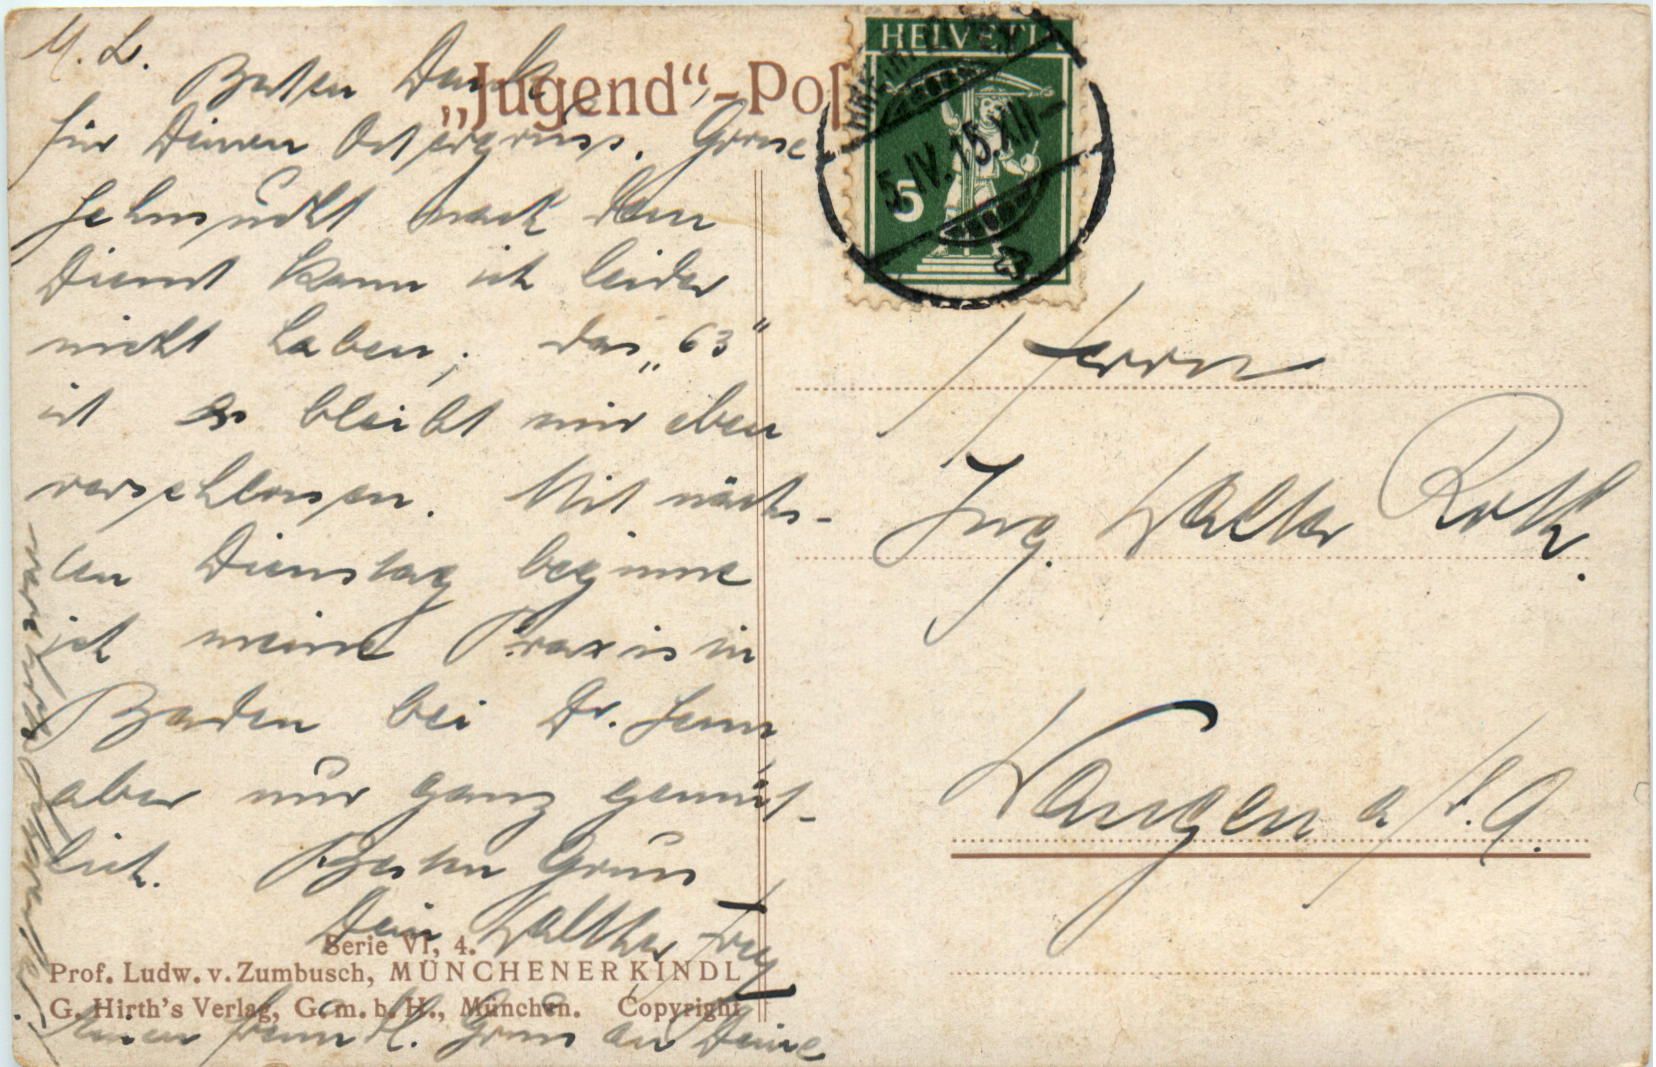 M. L.
Besten Dank
für Deinen Ostergruss. Grosse
Sehnsucht nach dem
Dienst kann ich leider
nicht haben; das „63"
ist es bleibt mir eben
verschlossen. Mit nächs-
ten Dienstag beginne
ich meine Praxis in
Baden bei Dr.
aber nur ganz gemüt-
lich. Besten Gruss
Dein Walther Frey
Einen freundl. Gruss an Deine
„Jugend"-Pos
HELVETIA
5
5.IV.15.XII
Herrn
Ing. Walter Roth.
Wangen a/d. A.
Serie VI, 4.
Prof. Ludw. v. Zumbusch, MÜNCHENER KINDL
G. Hirth's Verlag, G. m. b. H., München. Copyright